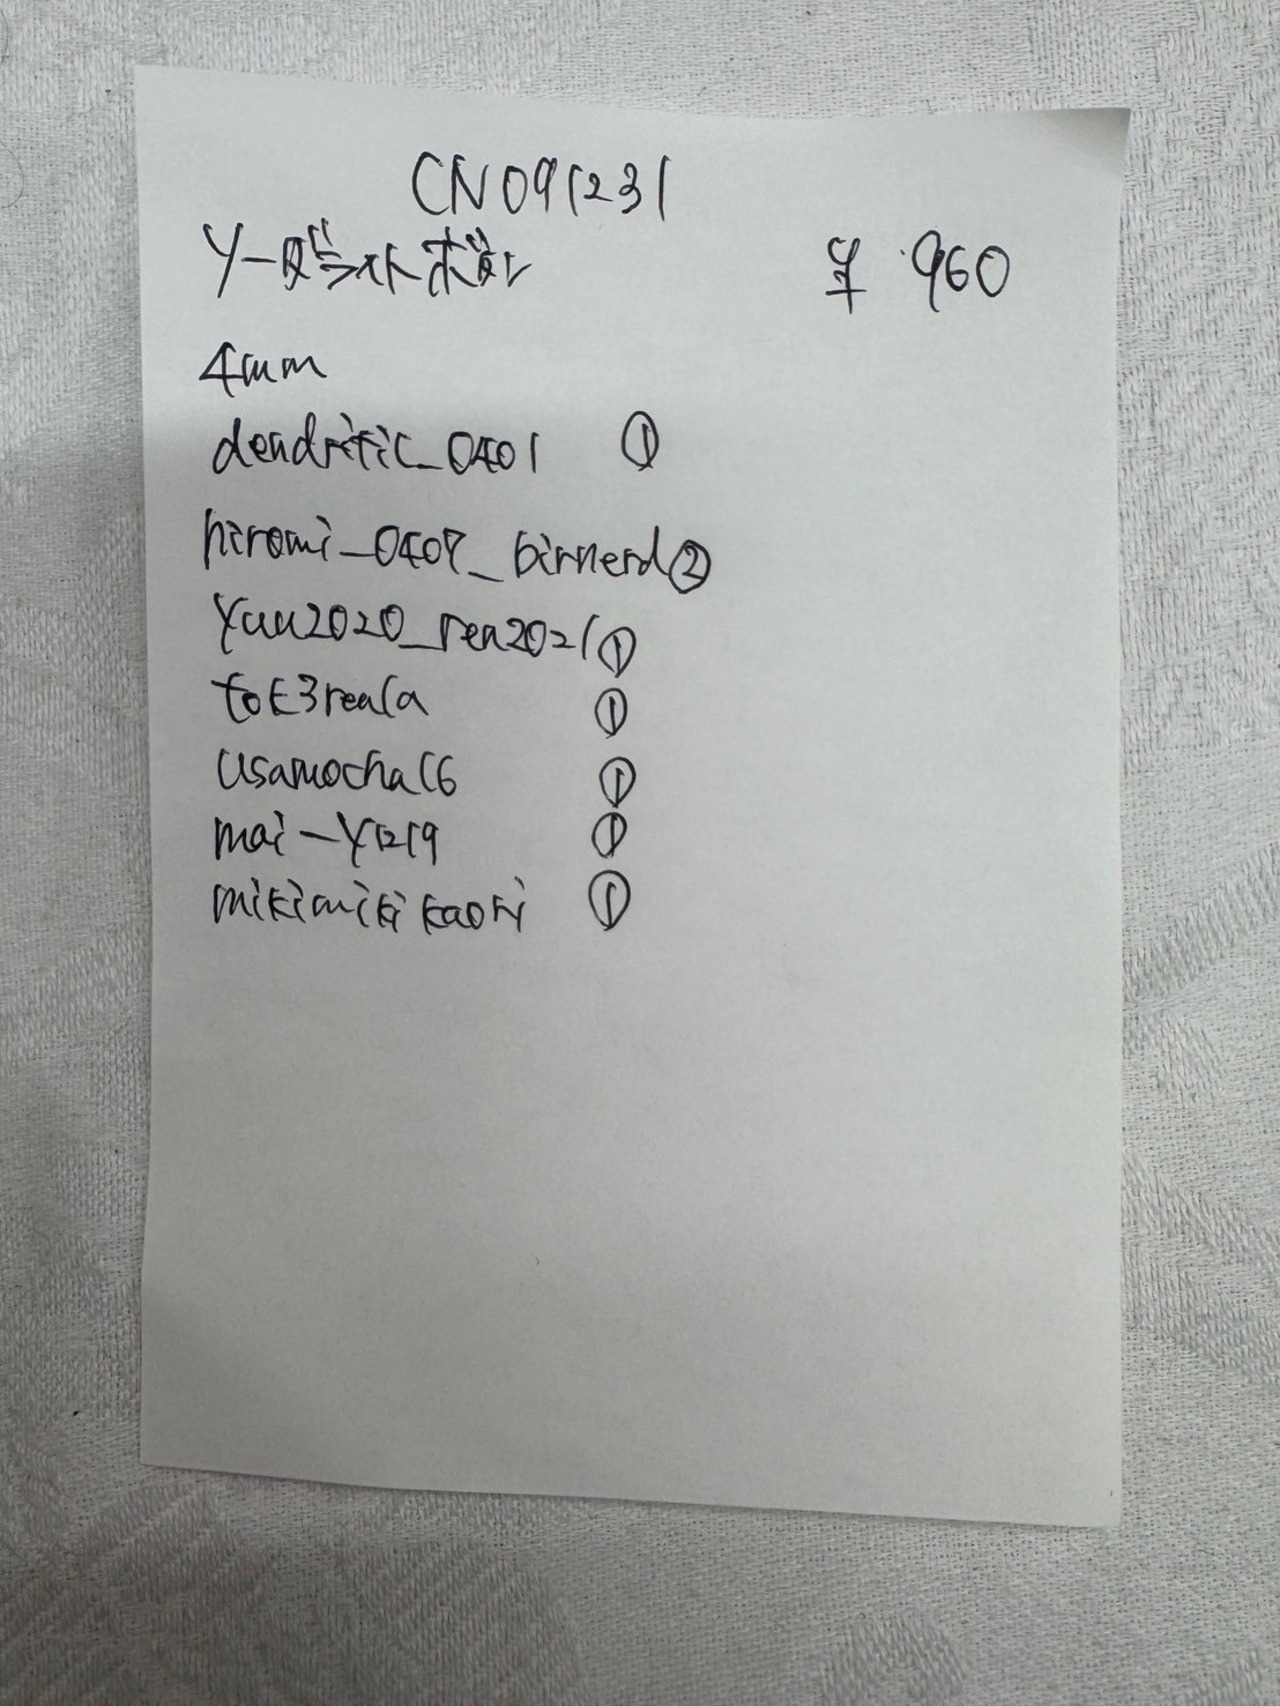 CN091231
¥ 960
4mm
dendritic_0401 ①
hiromi_0407_birnerd ②
Yuu2020_ren2021 ①
toE3reala ①
usamocha16 ①
mai-Y1219 ①
mikimiki kaori ①